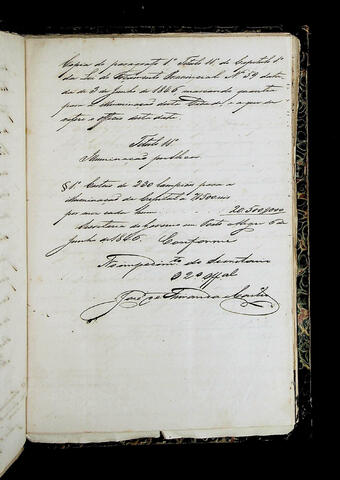 Copia do paragrafo 1º Titulo 11º do Capitulo 1º
da Lei do Orçamento Provincial Nº 54 data-
da de 2 de Junho de 1846 marcando quantia
para a illuminação desta Cidade e a que se
refere o officio desta data
Titulo 11º
Illuminação publica
§ 1º Custeio de 230 lampiões para a
illuminação da Capital a 7$500 reis
por mez cada hum 20.500$000
Secretaria do Governo em Porto Alegre 6 de
Junho de 1846. Conforme
No impedimto do Secretario
O 2º offal
José Fernandes